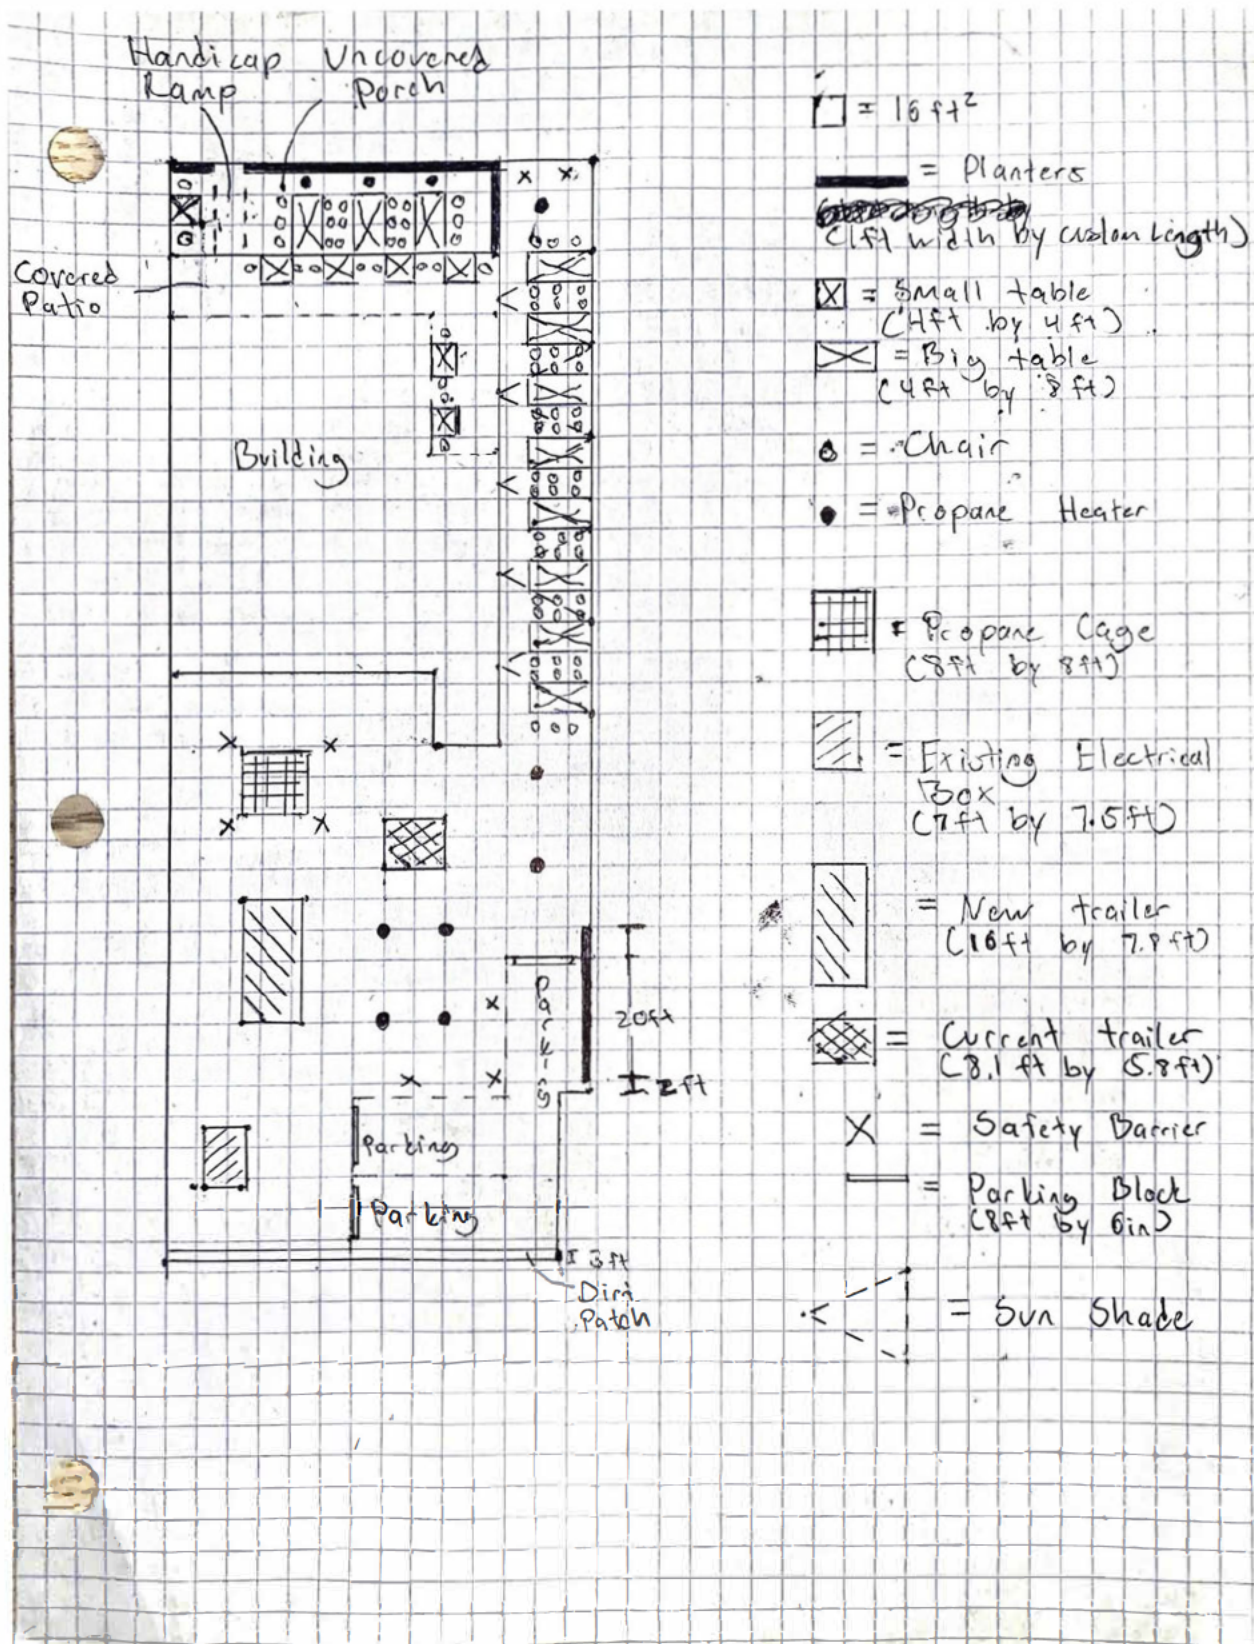 Handicap
Ramp
Uncovered
Porch
Covered
Patio
Building
Parking
Parking
Parking
20ft
2ft
3ft
Dirt
Patch
= 16 ft²
= Planters
(1ft width by custom length)
= Small table
(4ft by 4ft)
= Big table
(4ft by 8ft)
= Chair
= Propane Heater
= Propane Cage
(8ft by 8ft)
= Existing Electrical
Box
(7ft by 7.5ft)
= New trailer
(16ft by 7.8ft)
= Current trailer
(8.1 ft by 5.8ft)
= Safety Barrier
= Parking Block
(8ft by 6in)
= Sun Shade